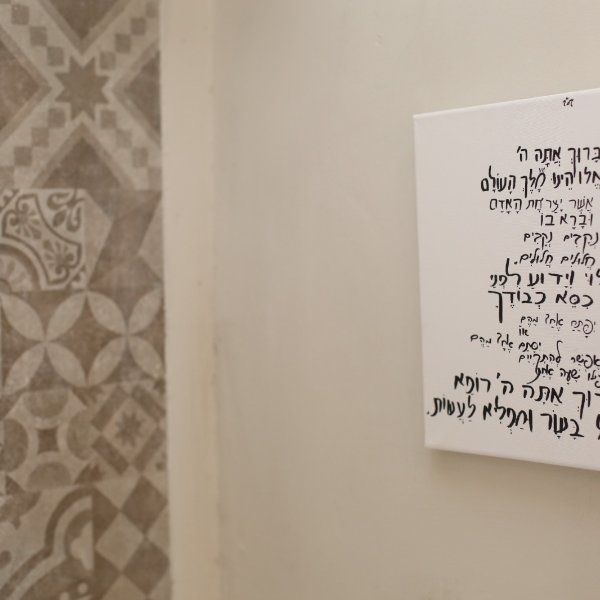 בס"ד
בָּרוּךְ אַתָּה ה'
אֱלוֹהֵינוּ מֶלֶךְ הָעוֹלָם
אֲשֶׁר יָצַר אֶת הָאָדָם
וּבָרָא בוֹ
נְקָבִים נְקָבִים
חֲלוּלִים חֲלוּלִים.
וְיָדוּעַ לִפְנֵי
כִסֵּא כְבוֹדֶךָ
יִפָּתֵחַ אֶחָד מֵהֶם
אוֹ
יִסָּתֵם אֶחָד מֵהֶם
אֶפְשָׁר לְהִתְקַיֵּים
שָׁעָה אַחַת
אַתָּה ה' רוֹפֵא
בָּשָׂר וּמַפְלִיא לַעֲשׂוֹת.